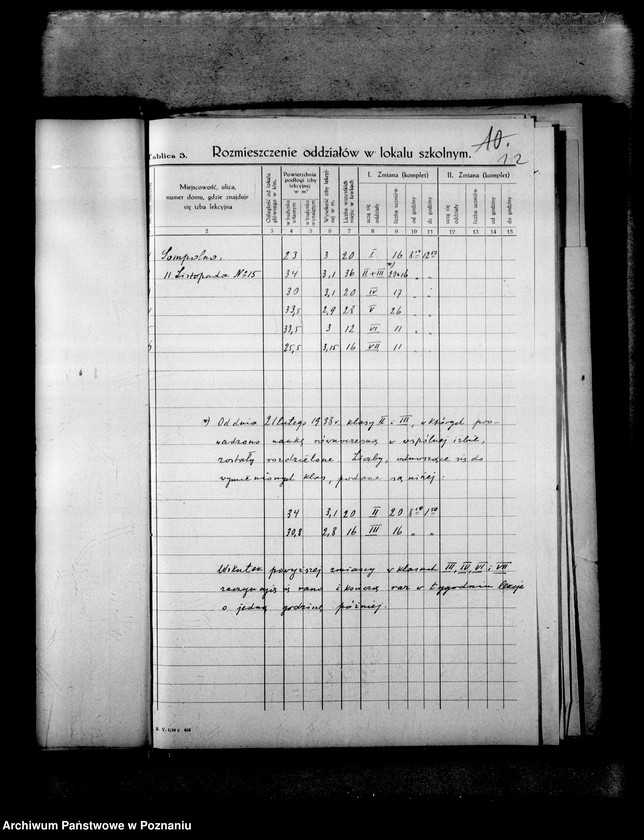 10.
12
Tablica 3. Rozmieszczenie oddziałów w lokalu szkolnym.
Miejscowość, ulica, numer domu, gdzie znajduje się izba lekcyjna
Odległość od lokalu głównego w klm.
Powierzchnia podłogi izby lekcyjnej w m²
w budynku własnym
w budynku wynajętym
Wysokość izby lekcyjnej w m.
Liczba wszystkich miejsc w ławkach
I. Zmiana (komplet)
uczą się oddziały
liczba uczniów
od godziny
do godziny
II. Zmiana (komplet)
uczą się oddziały
liczba uczniów
od godziny
do godziny
2 3 4 5 6 7 8 9 10 11 12 13 14 15
Sompolno, 23 3 20 I 16 12
11 Listopada No 15 34 3,1 36 II+III *) 20+16 " "
30 3,1 20 IV 17 " "
33,5 2,9 28 V 26 " "
33,5 3 12 VI 11 " "
25,5 3,15 16 VII 11 " "
*) Od dnia 21 lutego 1938 r. klasy II i III, w których pro-
wadzono naukę równoczesną w wspólnej izbie,
zostały rozdzielone. Liczby, odnoszące się do
wymienionych klas, podane są niżej:
34 3,1 20 II 20
30,8 2,8 16 III 16 " "
Wskutek powyższej zmiany w klasach III, IV, VI i VII
zaczynają się rano i kończą raz w tygodniu lekcje
o jedną godzinę później.
Archiwum Państwowe w Poznaniu